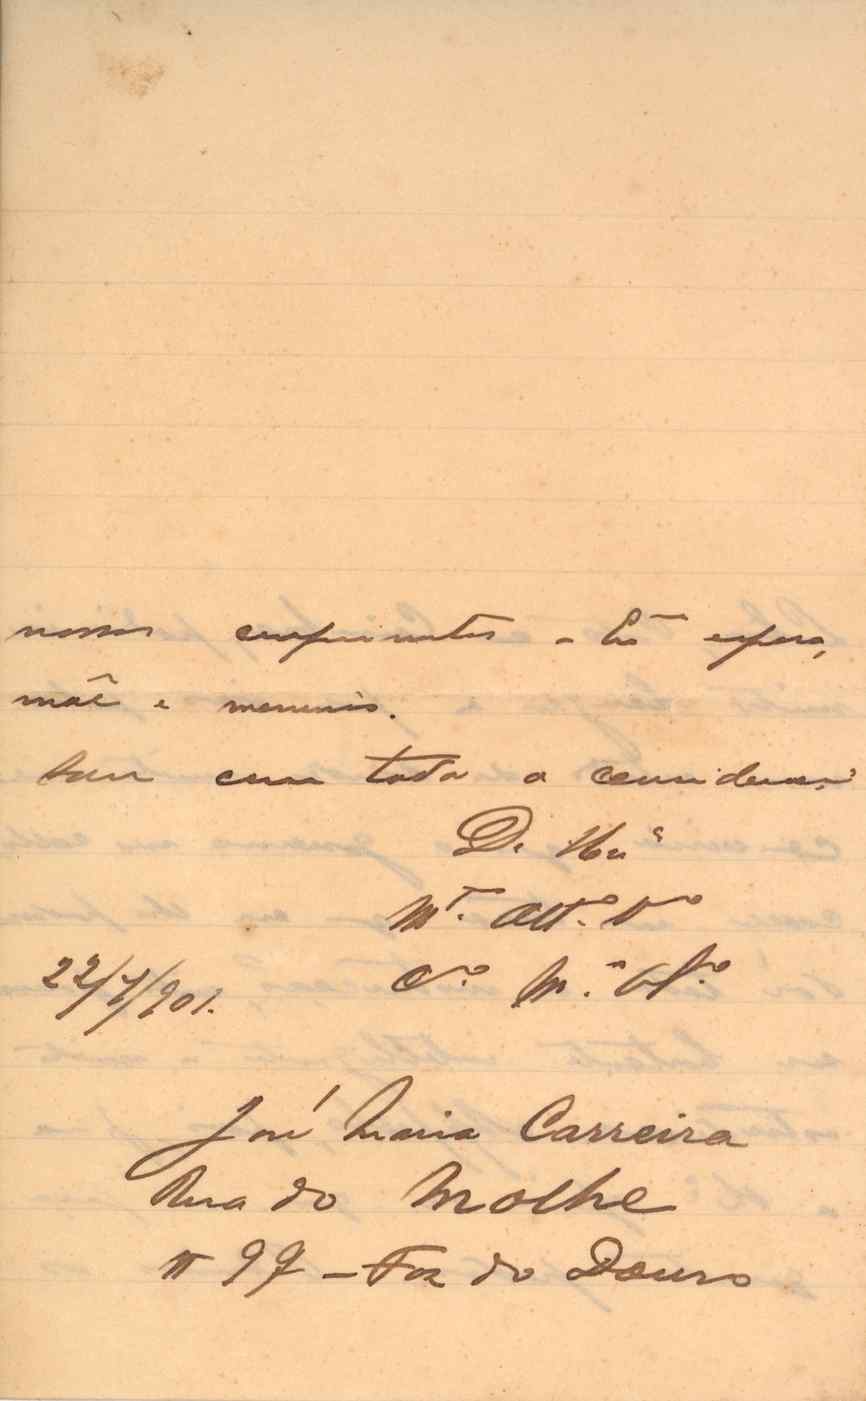 nossos cumprimentos a Exma esposa,
mãe e meninos.
Sou com toda a consideração
De V. Exa
Mto. Atto. Vo
Co. M.to Obo.
22/7/901.
José Maria Carreira
Rua do Molhe
nº 97 - Foz do Douro